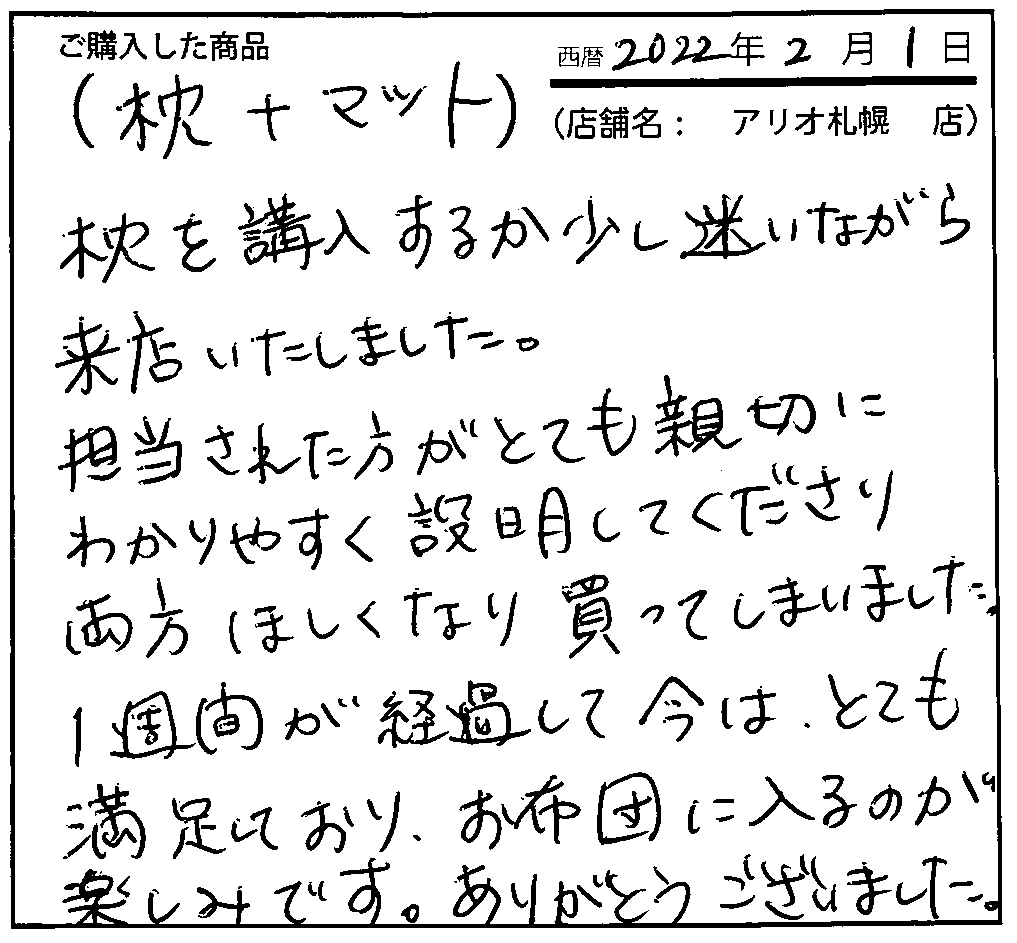 ご購入した商品
西暦 2022年 2月 1日
(枕 + マット)
(店舗名： アリオ札幌 店)
枕を講入するか少し迷いながら
来店いたしました。
担当された方がとても親切に
わかりやすく説明してくださり
両方ほしくなり買ってしまいました。
1週間が経過して今は、とても
満足しており、お布団に入るのが
楽しみです。ありがとうございました。